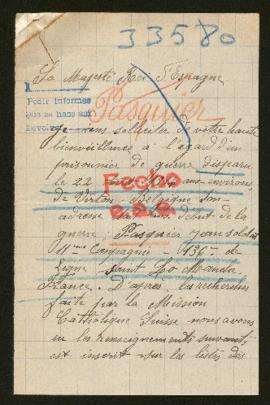 33580
Sa Majesté Roi d'Espagne
Pedir informes
que se hace ser
Devolver
Pasquier
solliciter de votre haute
bienveillance à l'égard d'un
prisonnier de guerre disparu
le 22 aux environs
Fecho
de Virton Belgique son
adresse début de la
guerre: Pasquier soldat
11me Compagnie 136e de
ligne Saint Lo Manche
France. D'après les recherches
faite par la Mission
Catholique Suisse nous avons
eu les renseignements suivant,
est inscrit sur les listes des